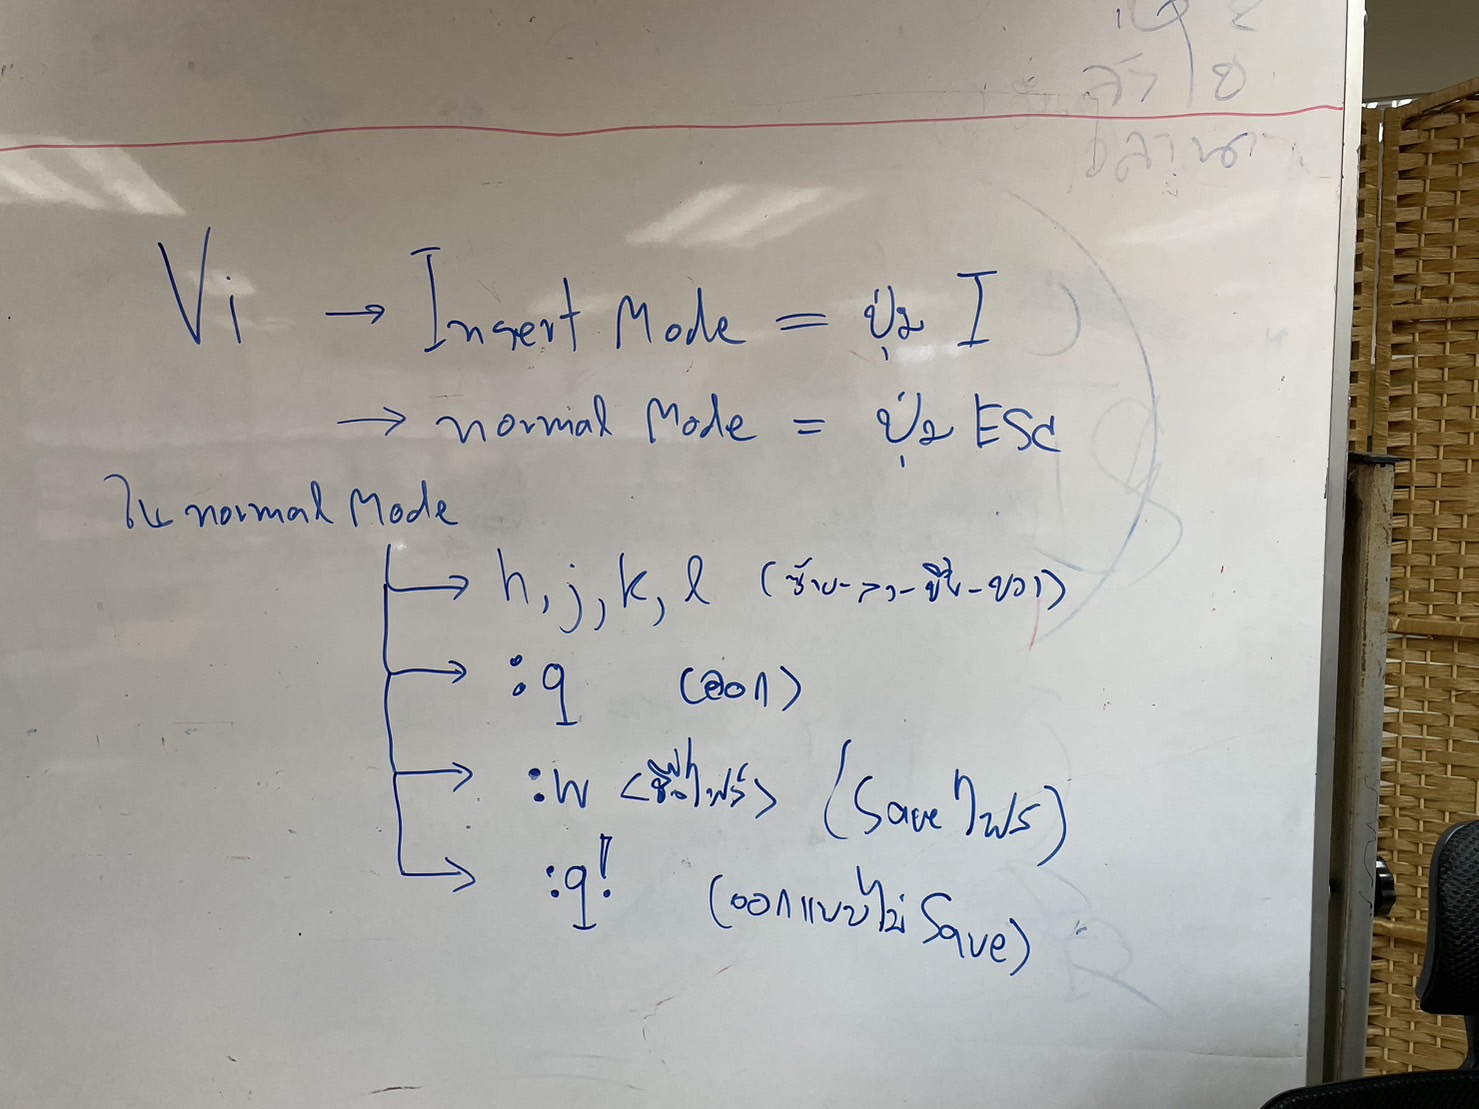 Vi → Insert Mode = ปุ่ม I
→ normal Mode = ปุ่ม ESC
ใน normal Mode
→ h, j, k, l (ซ้าย-ลง-ขึ้น-ขวา)
→ :q (ออก)
→ :w <ชื่อไฟล์> (Save ไฟล์)
→ :q! (ออกแบบไม่ Save)